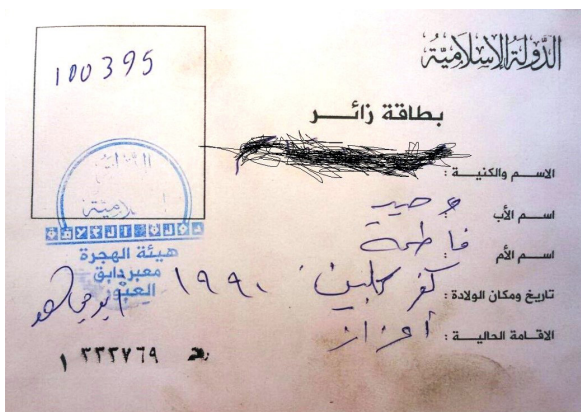 الدولة الإسلامية
100395
بطاقة زائر
الاسم والكنية :
اسم الأب وحيد
اسم الأم : فاطمة
تاريخ ومكان الولادة : كفر كلبين ١٩٩٠
الاقامة الحالية : أعزاز
هيئة الهجرة
معبر دابق
العبور
ابو مجاهد